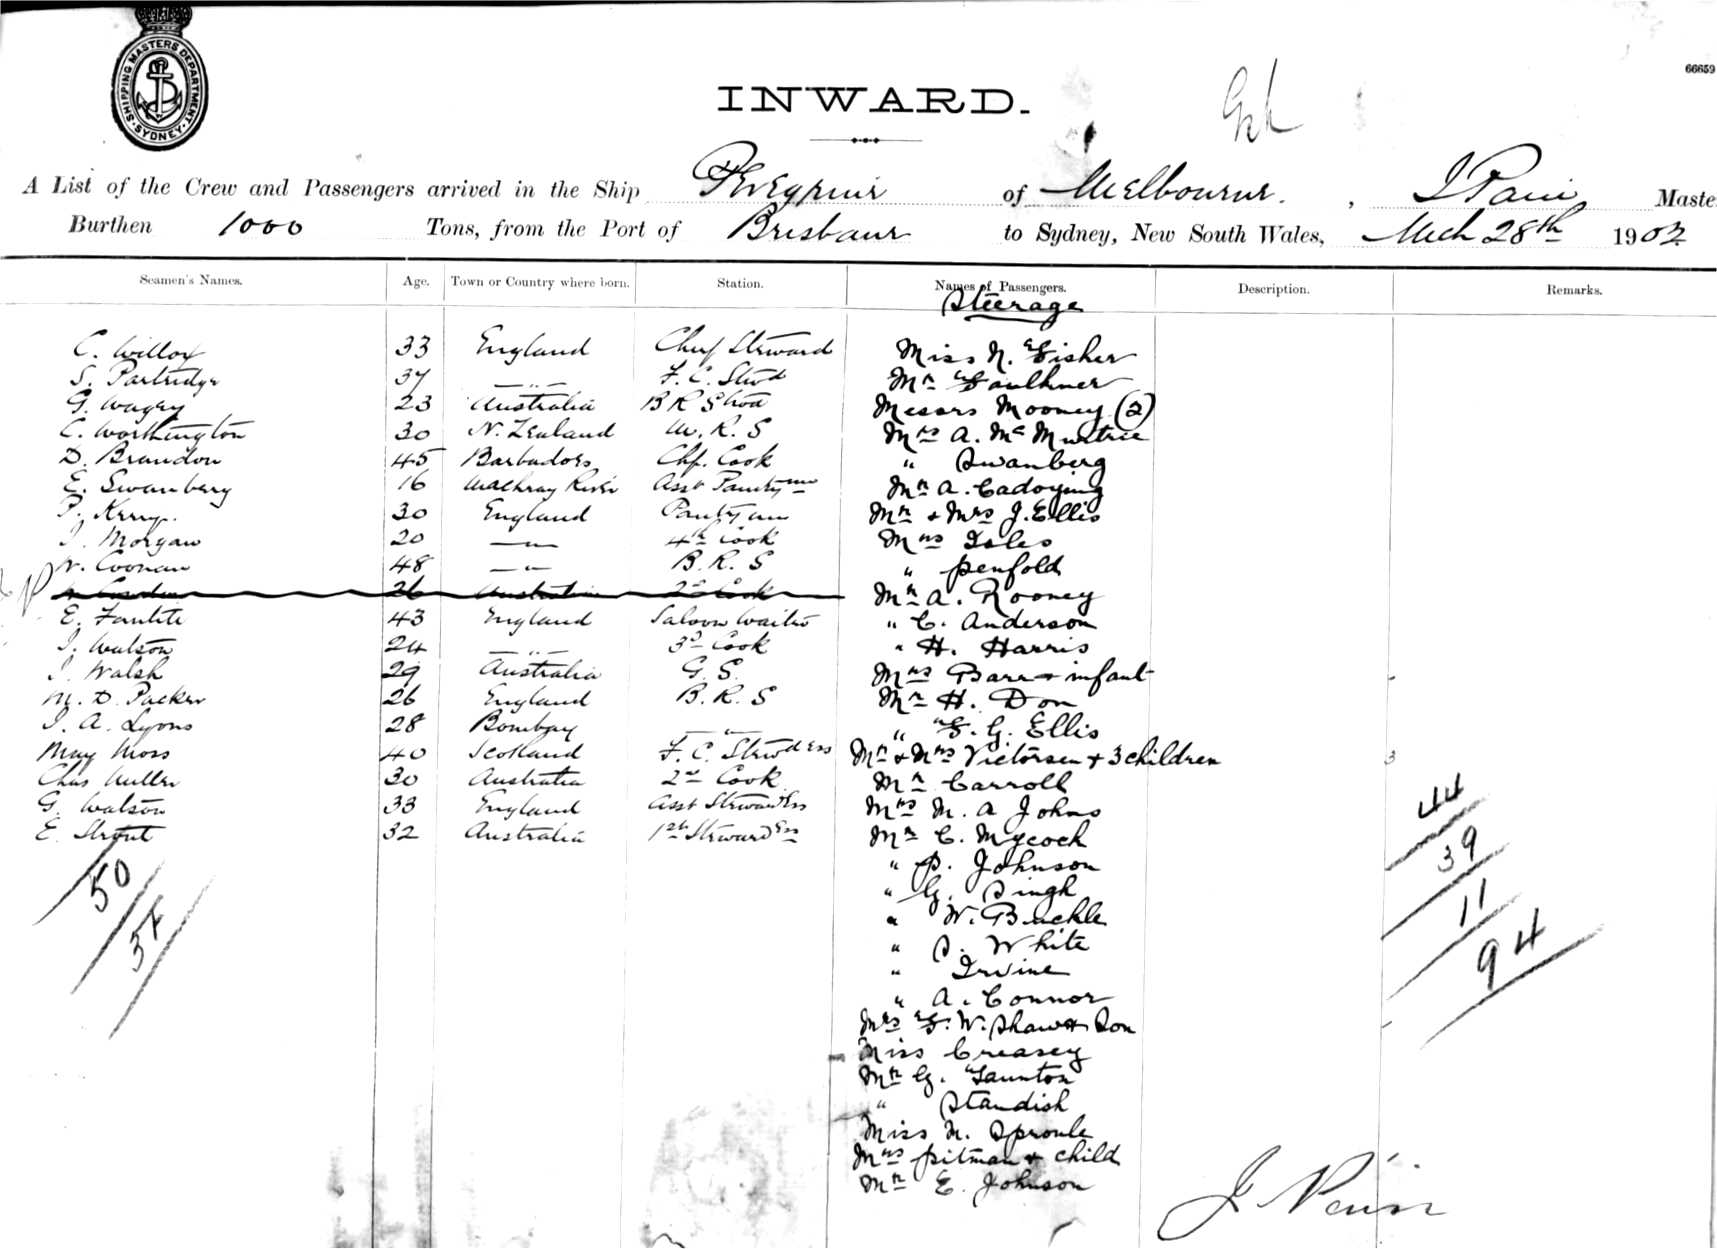 SHIPPING MASTERS DEPARTMENT. SYDNEY.
66659
INWARD.
A List of the Crew and Passengers arrived in the Ship Peregrine of Melbourne, J Pain Maste
Burthen 1000 Tons, from the Port of Brisbane to Sydney, New South Wales, Mch 28th 1902
Seamen's Names. Age. Town or Country where born. Station. Names of Passengers. Description. Remarks.
Steerage
C. Willox 33 England Chief Steward Miss N. Fisher
S. Partridge 37 —"— F. C. Stwd Mr Faulkner
G. Wagey 23 Australia B R Stwd Messrs Mooney (2)
C. Worthington 30 N. Zealand W. R. S Mrs A. Mc Murtrie
D. Brandon 45 Barbados Chf. Cook " Swanberg
E. Swanberg 16 River Asst Pantryman Mr A. Cadoying
P. Kerry. 30 England Pantryman Mr & Mrs J. Ellis
J. Morgan 20 —"— 4th Cook Mrs Isles
N. Coonan 48 —"— B. R. S " Penfold
26 Australia 2nd Cook Mr A. Rooney
E. 43 England Saloon Waiter " C. Anderson
J. Watson 24 —"— 3rd Cook " H. Harris
J. Walsh 29 Australia G. S. Mrs Barr & infant
M. D. Packer 26 England B. R. S Mr H. Don
J. A. Lyons 28 Bombay —"— " F. G. Ellis
May Moss 40 Scotland F. C. Stwdess Mr & Mrs Victorsen & 3 children 3
Chas Miller 30 Australia 2nd Cook Mr Carroll
G. Watson 33 England Asst Stewardess Mrs M. A Johns
E. Strout 32 Australia 1st Stewardess Mr C. Mycock
" P. Johnson
" G. Singh
" W. Buckle
" S. White
" Irvine
" A. Connor
Mrs F. W. Shaw & Son
Miss Creasey
Mr G. Taunton
" Standish
Miss N. Sproule
Mrs Pitman & child
Mr E. Johnson
50
57
44
39
11
94
J Pain